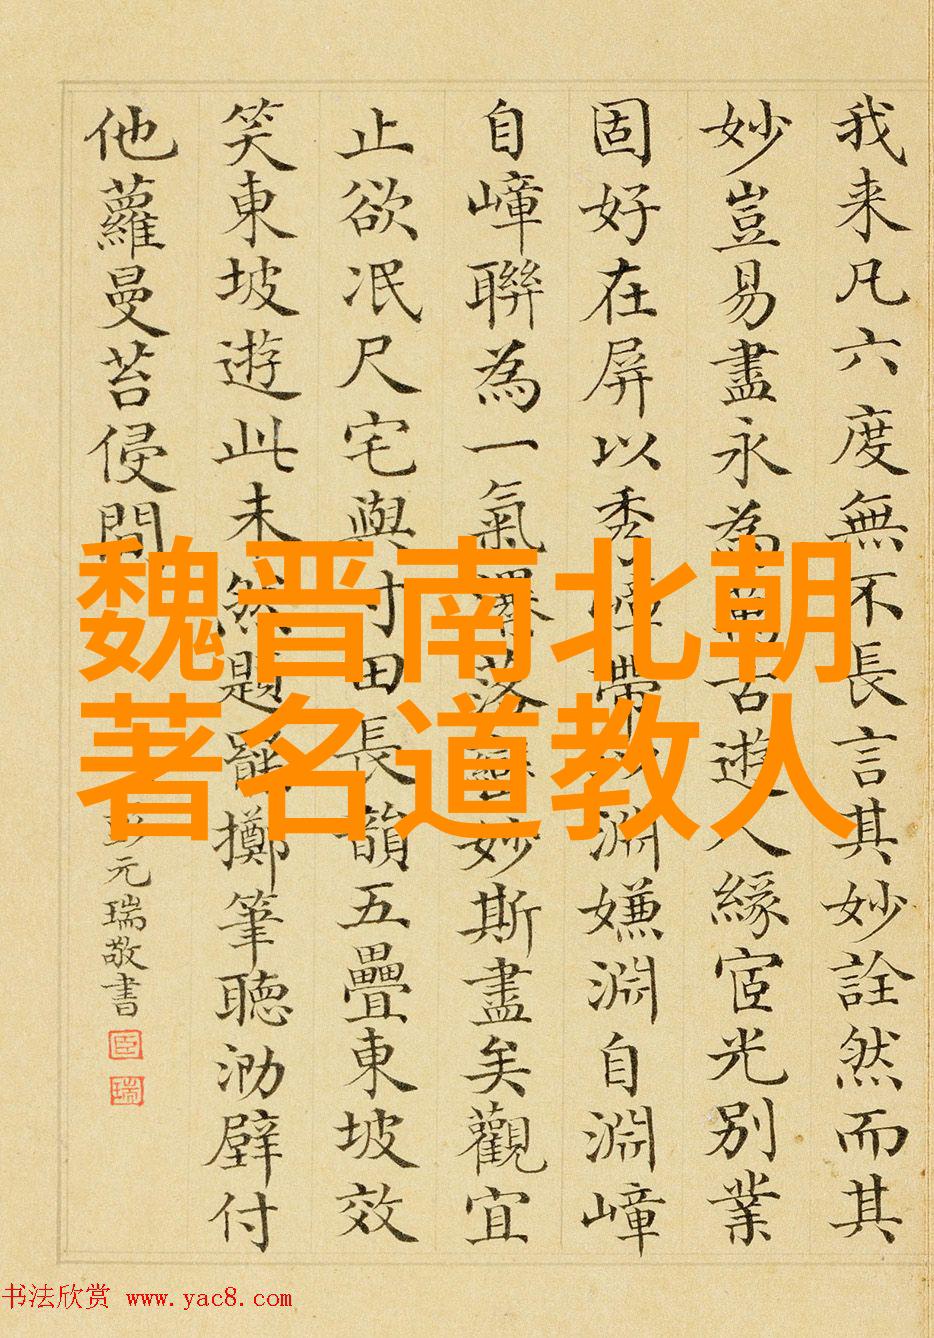 我来凡六度無不長言其妙詮然而其
妙豈易盡永為萬古遊人緣宦光別業
固好在屏以秀嶂帶淵嫌淵自淵嶂
自嶂聯為一氣落妙斯盡矣觀宜
止欲泯尺宅與寸田長韻五疊東坡效
笑東坡遊此未然題辭擲筆聽泐壁付
他蘿曼苔侵間
彭元瑞敬書
臣
瑞
魏晋南北朝
著名道教人
书法欣赏 www.yac8.com